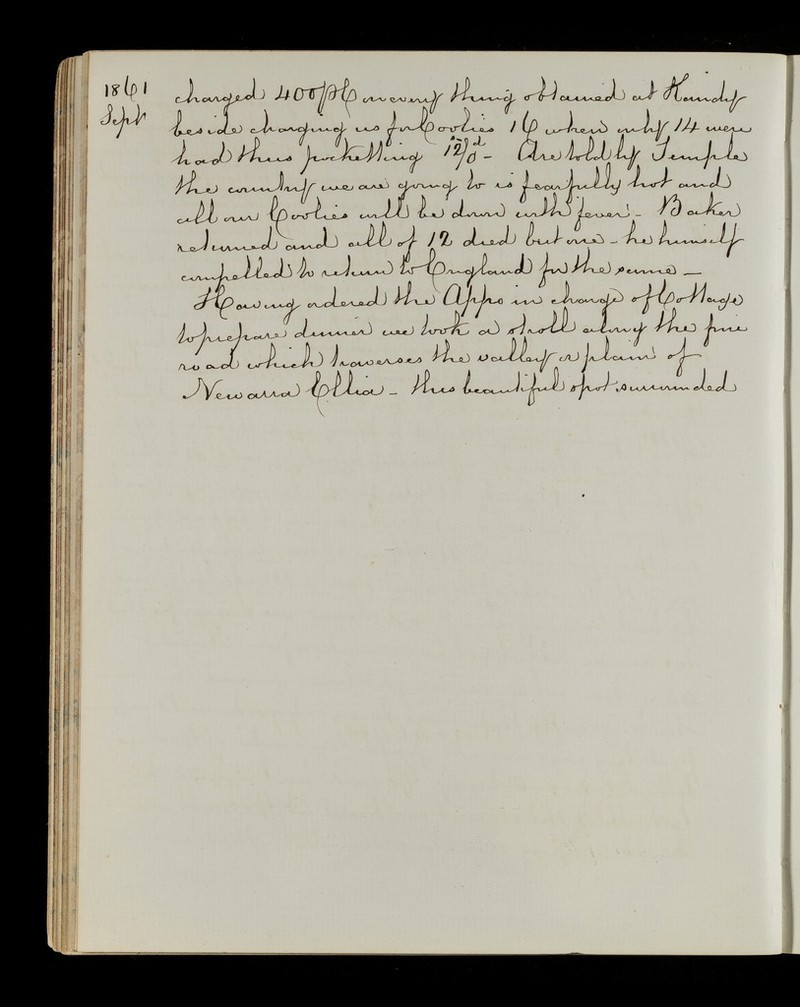 1861 charged 400 p C on every thing obtained at Kandy
Sept beside charging us for Coolies 16 when only 14 were
had thus pocketting 12s/0d - Are told by Temple
the country we are going to is fearfully hot and
all our Coolies will be down with fever - Baker
returned and all of 12 died but one - he himself
compelled to return to England for the same -
Having ordered the Appo in charge of Cottage
to prepare dinner we took a stroll along the fine
road which traverses the valley or plain of
Newarra Ellia - this beautiful spot surrounded